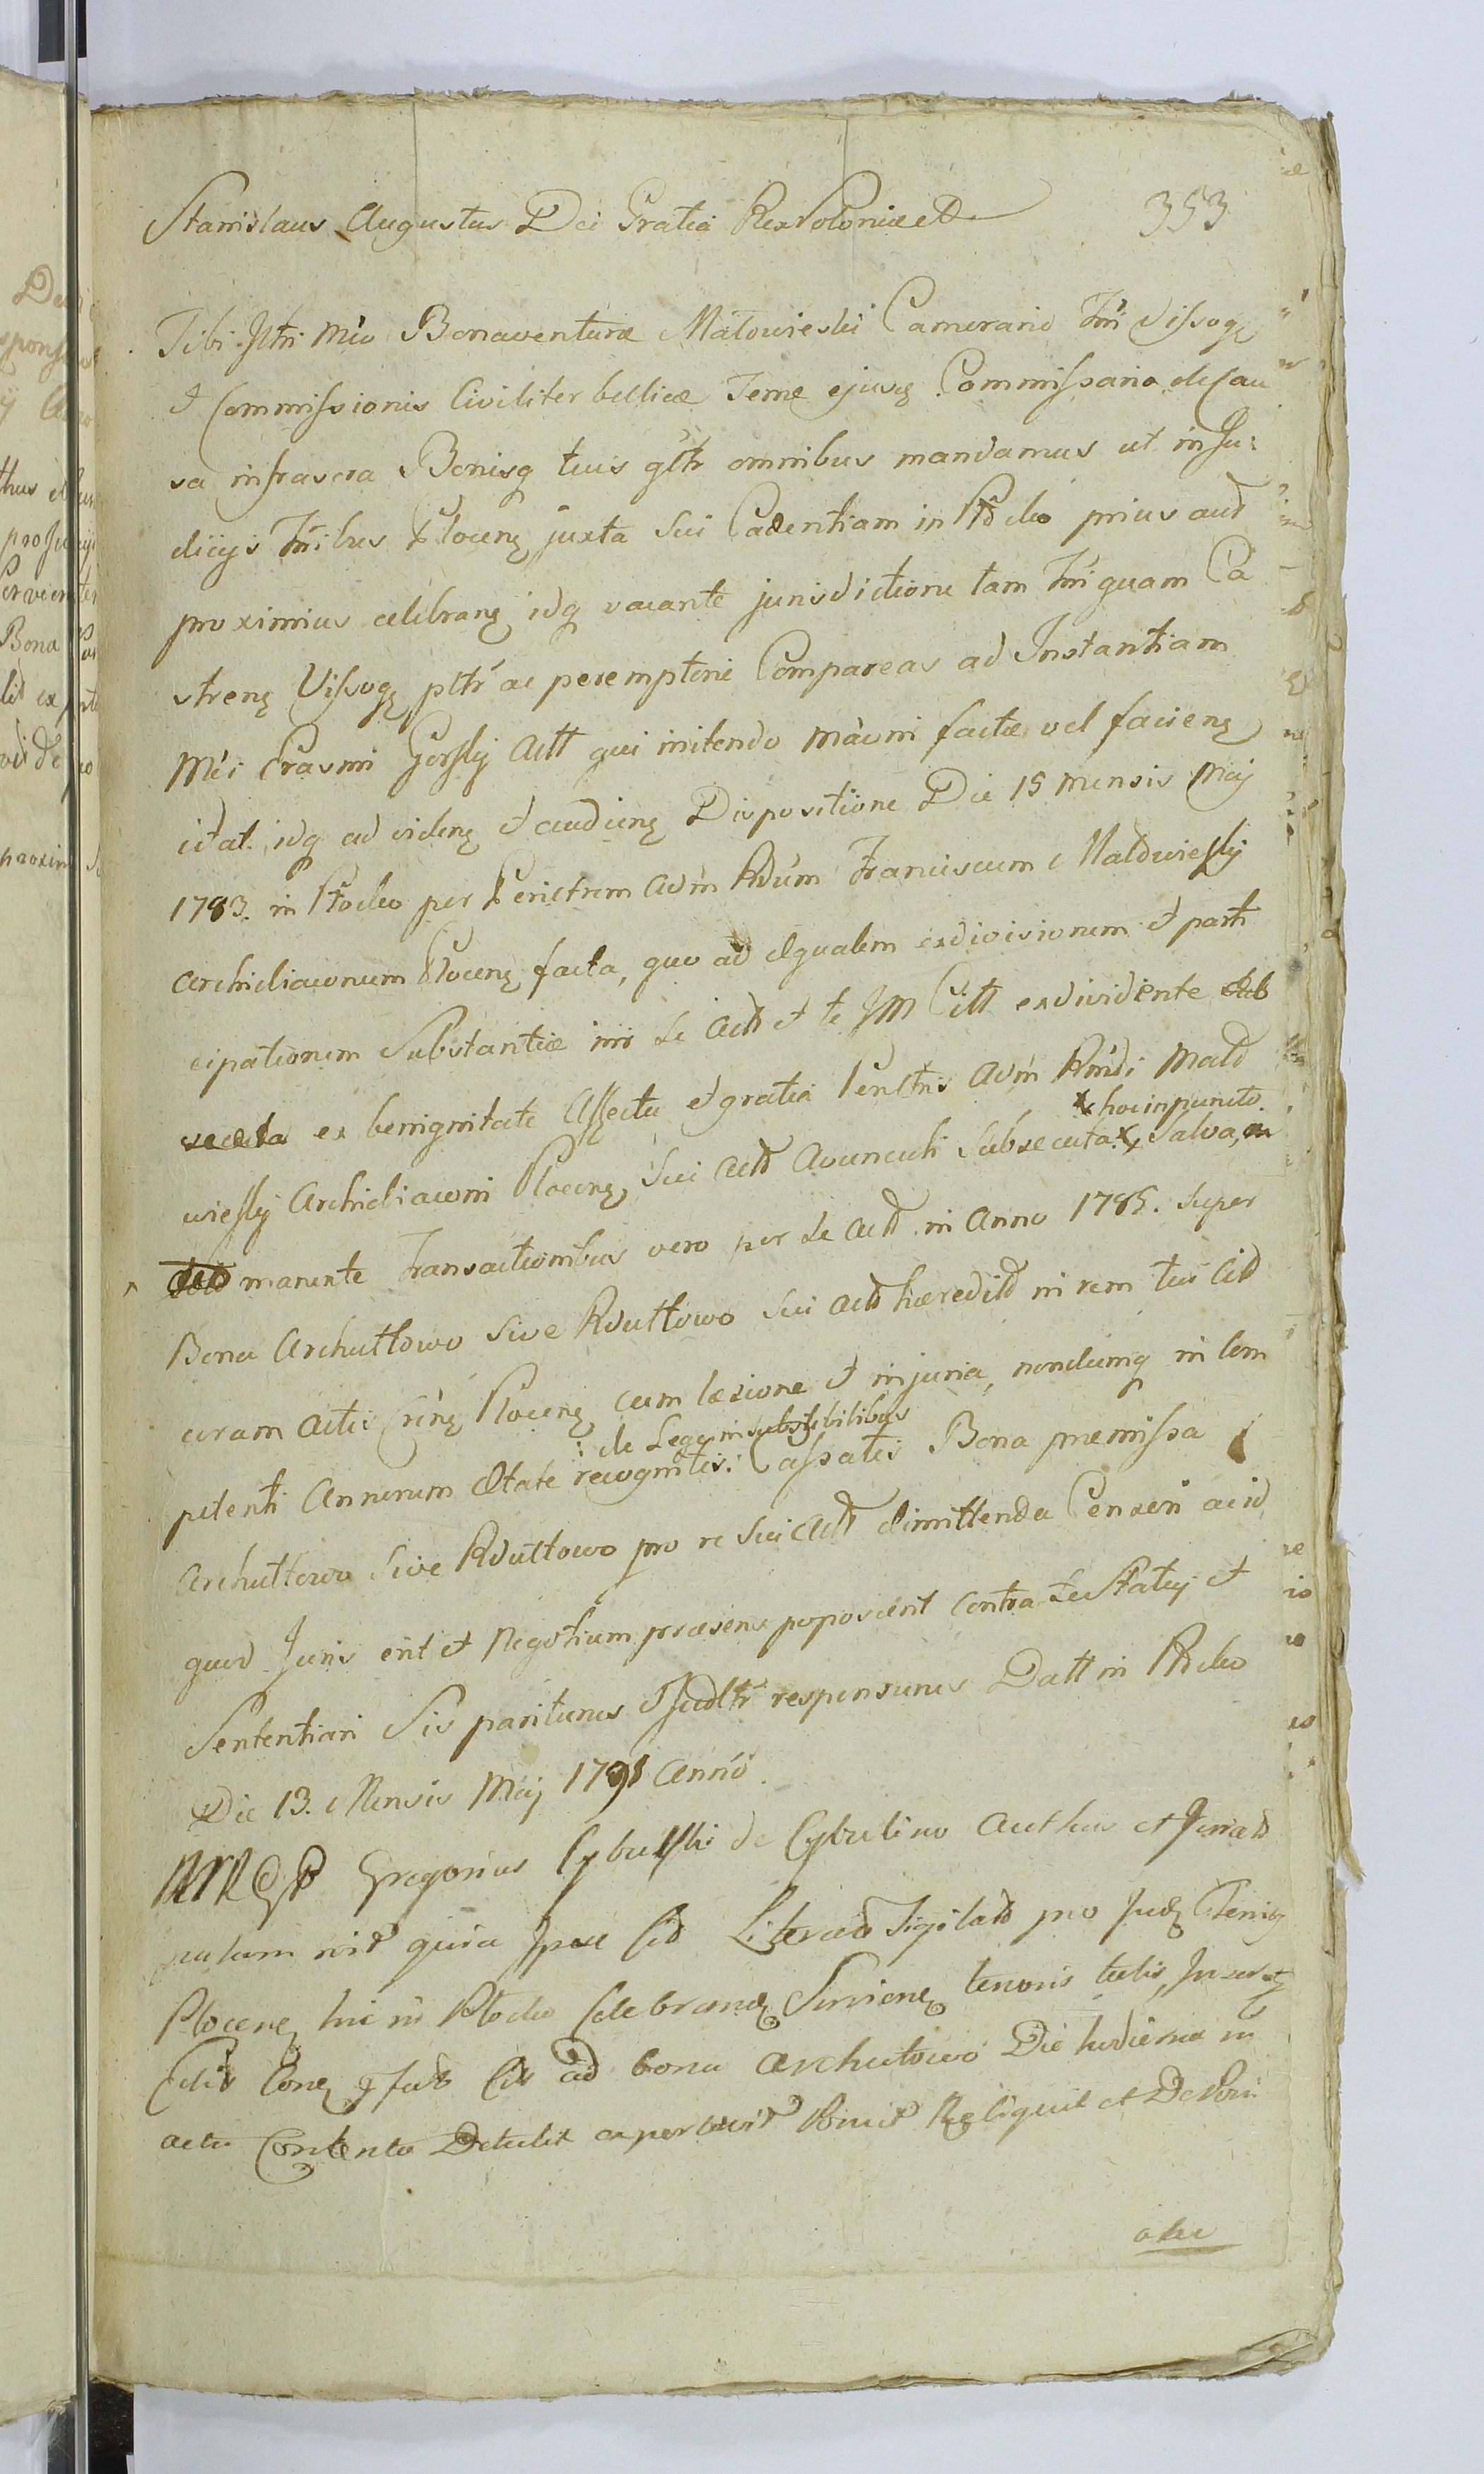 353
Stanislaus Augustus Dei Gratia Rex Poloniae etc
Tibi Gltri Mco Bonaventurae Małowieski Camerario Tri Vissogę
et Commissionis Civiliter bellicae Terrae ejusq Commissario de Cau
sa infrascra Bonisq tuis gltr omnibus mandamus ut in Ju:
diciys Tribus Plocenę juxta sui Cadentiam in Ptocko prius aut
proximius celebranę idq vacante jurisdictione tam Tri quam Ca
strenę Vissogę pltr ac peremptorie Compareas ad Instantiam
Mci Erasmi Gorskij Actt qui initendo mavni factae vel facienę
citat. idq ad videnę et audienę Dispositione Die 15 mensis Maij
1783. in Ptocko per Perictrem Adm Rdum Franciscum Małowieskij
Archidiaconum Plocenę facta, quo ad equalem exdivisionem et parti
cipationem Substantiae inr se Actt et te Citt exdividente sub
secuta ex benignitate Affectu et gratia Perictris Adm Rndi Mało
wieskij Archidiaconi Plocenę Sui Actt Avunculi Subsecuta x Salva, in
x hoc in puncto.
toto manente Transactionibus vero per se Actt in Anno 1785. super
Bona Archutowo sive Rdutowo sui Actt haeredit in rem tui Citt
coram Actis Plocenę cum laesione et injuria, nondumq in com
: de Lege insubstibilibus
petenti Annorum AEtate recognitis: Cassatis Bona praemissa
Archutowo sive Rdutowo pro re sui Actt dimittenda Censeri ac id
quod Juris erit et Negotium praesens poposcerit contra te Statuj et
Sententiari Sis pariturus et Judltr responsurus Datt in Ptocko
Die 13. Mensis Maij 1791 Anno.
Gregorius Cybulski de Cybulino Authus et Jurat
quia Ipse Literas Sigilat pro Judę Terrisq
Plocenę hic in Ptocko Celebranę Servienę tenoris talis, Inserę
ad bona Archutowo Die hodierna in
actu Contento Detulit apertavit Ponuit Reliquit et De Posi